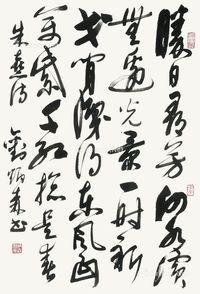 勝日尋芳泗水濱
無邊光景一時新
等閒識得東風面
萬紫千紅總是春
朱熹詩 劉炳森書